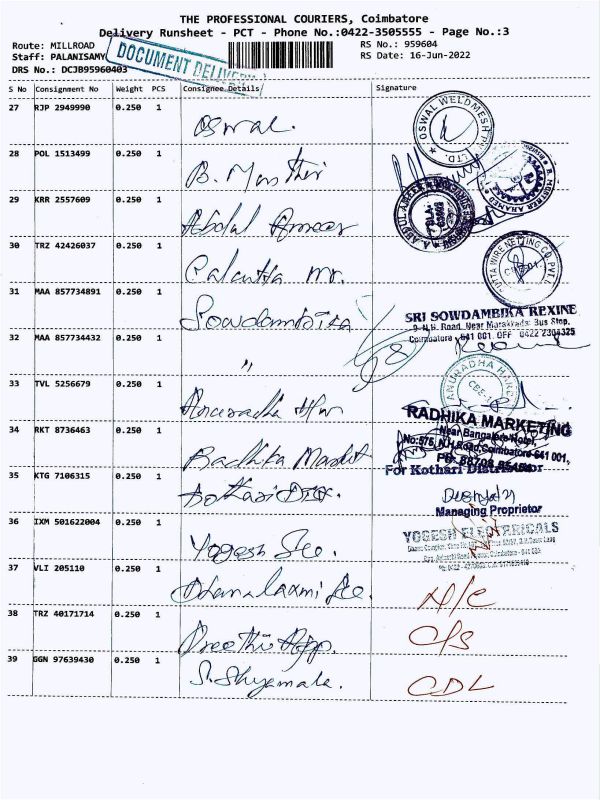 THE PROFESSIONAL COURIERS, Coimbatore
Delivery Runsheet - PCT - Phone No.:0422-3505555 - Page No.:3
Route: MILLROAD
RS No.: 959604
Staff: PALANISAMY
RS Date: 16-Jun-2022
DRS No.: DCJB95960403
DOCUMENT DELIVERY
S No Consignment No Weight PCS Consignee Details Signature
27 RJP 2949990 0.250 1 Oswal.
OSWAL WELDMESH PVT. LTD.
28 POL 1513499 0.250 1 B.
29 KRR 2557609 0.250 1 Abdul Ameer
30 TRZ 42426037 0.250 1 Calcutta
31 MAA 857734891 0.250 1 Sowdambika
SRI SOWDAMBIKA REXINE
9-N.H. Road, Near Marakkadai Bus Stop,
Coimbatore 641 001. OFF 0422 2304325
32 MAA 857734432 0.250 1 "
33 TVL 5256679 0.250 1 Anuradha Hw
ANURADHA HARD
CBE-1
34 RKT 8736463 0.250 1 Radhika Market
RADHIKA MARKETING
Near Bangalore Hotel,
No:575, N.H.Road, Coimbatore-641 001,
35 KTG 7106315 0.250 1 Kothari Dix.
For Kothari Distributor
Managing Proprietor
36 IXM 501622004 0.250 1 Yogesh Ele.
YOGESH ELECTRICALS
37 VLI 205110 0.250 1 Dhanalaxmi Ele.
N/C
38 TRZ 40171714 0.250 1 Preethi App.
C/S
39 GGN 97639430 0.250 1 S. Shyamala.
CDL